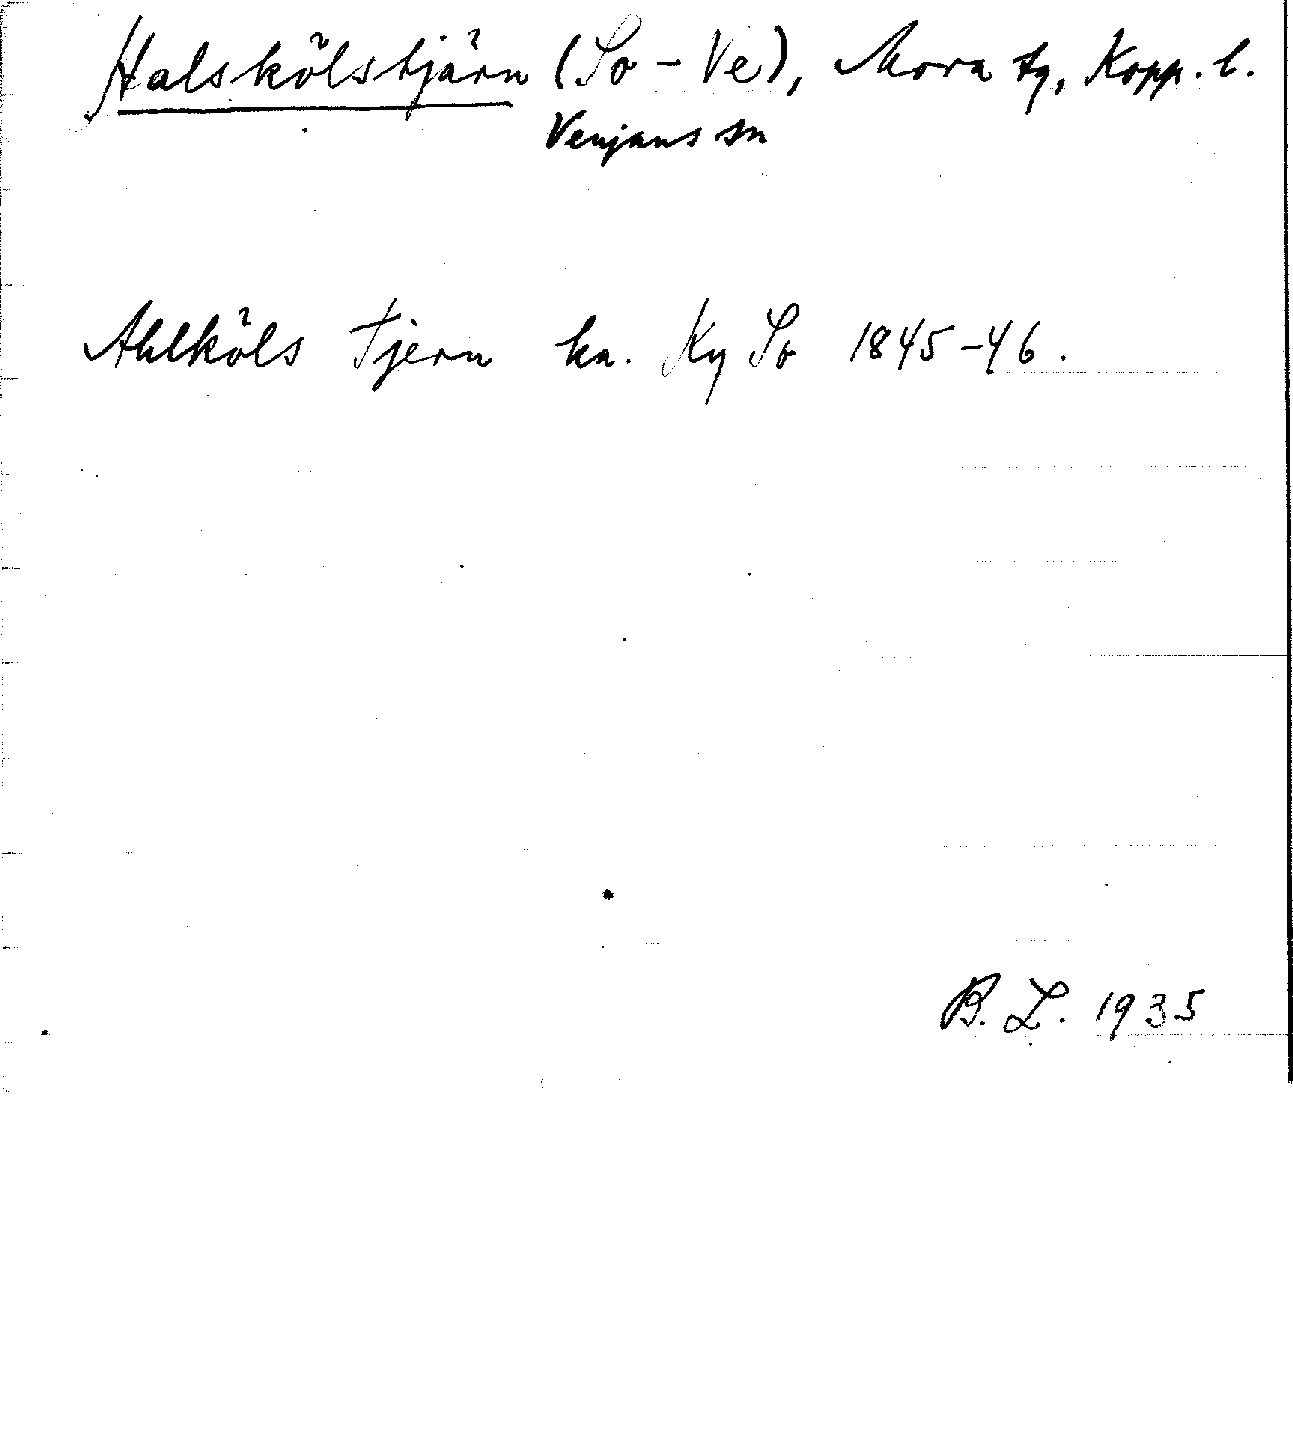 Halskölstjärn (So - Ve), Mora tg, Kopp. l.
Venjans sn
Ahlköls Tjern ka. Ky So 1845-46.
B. L. 1935